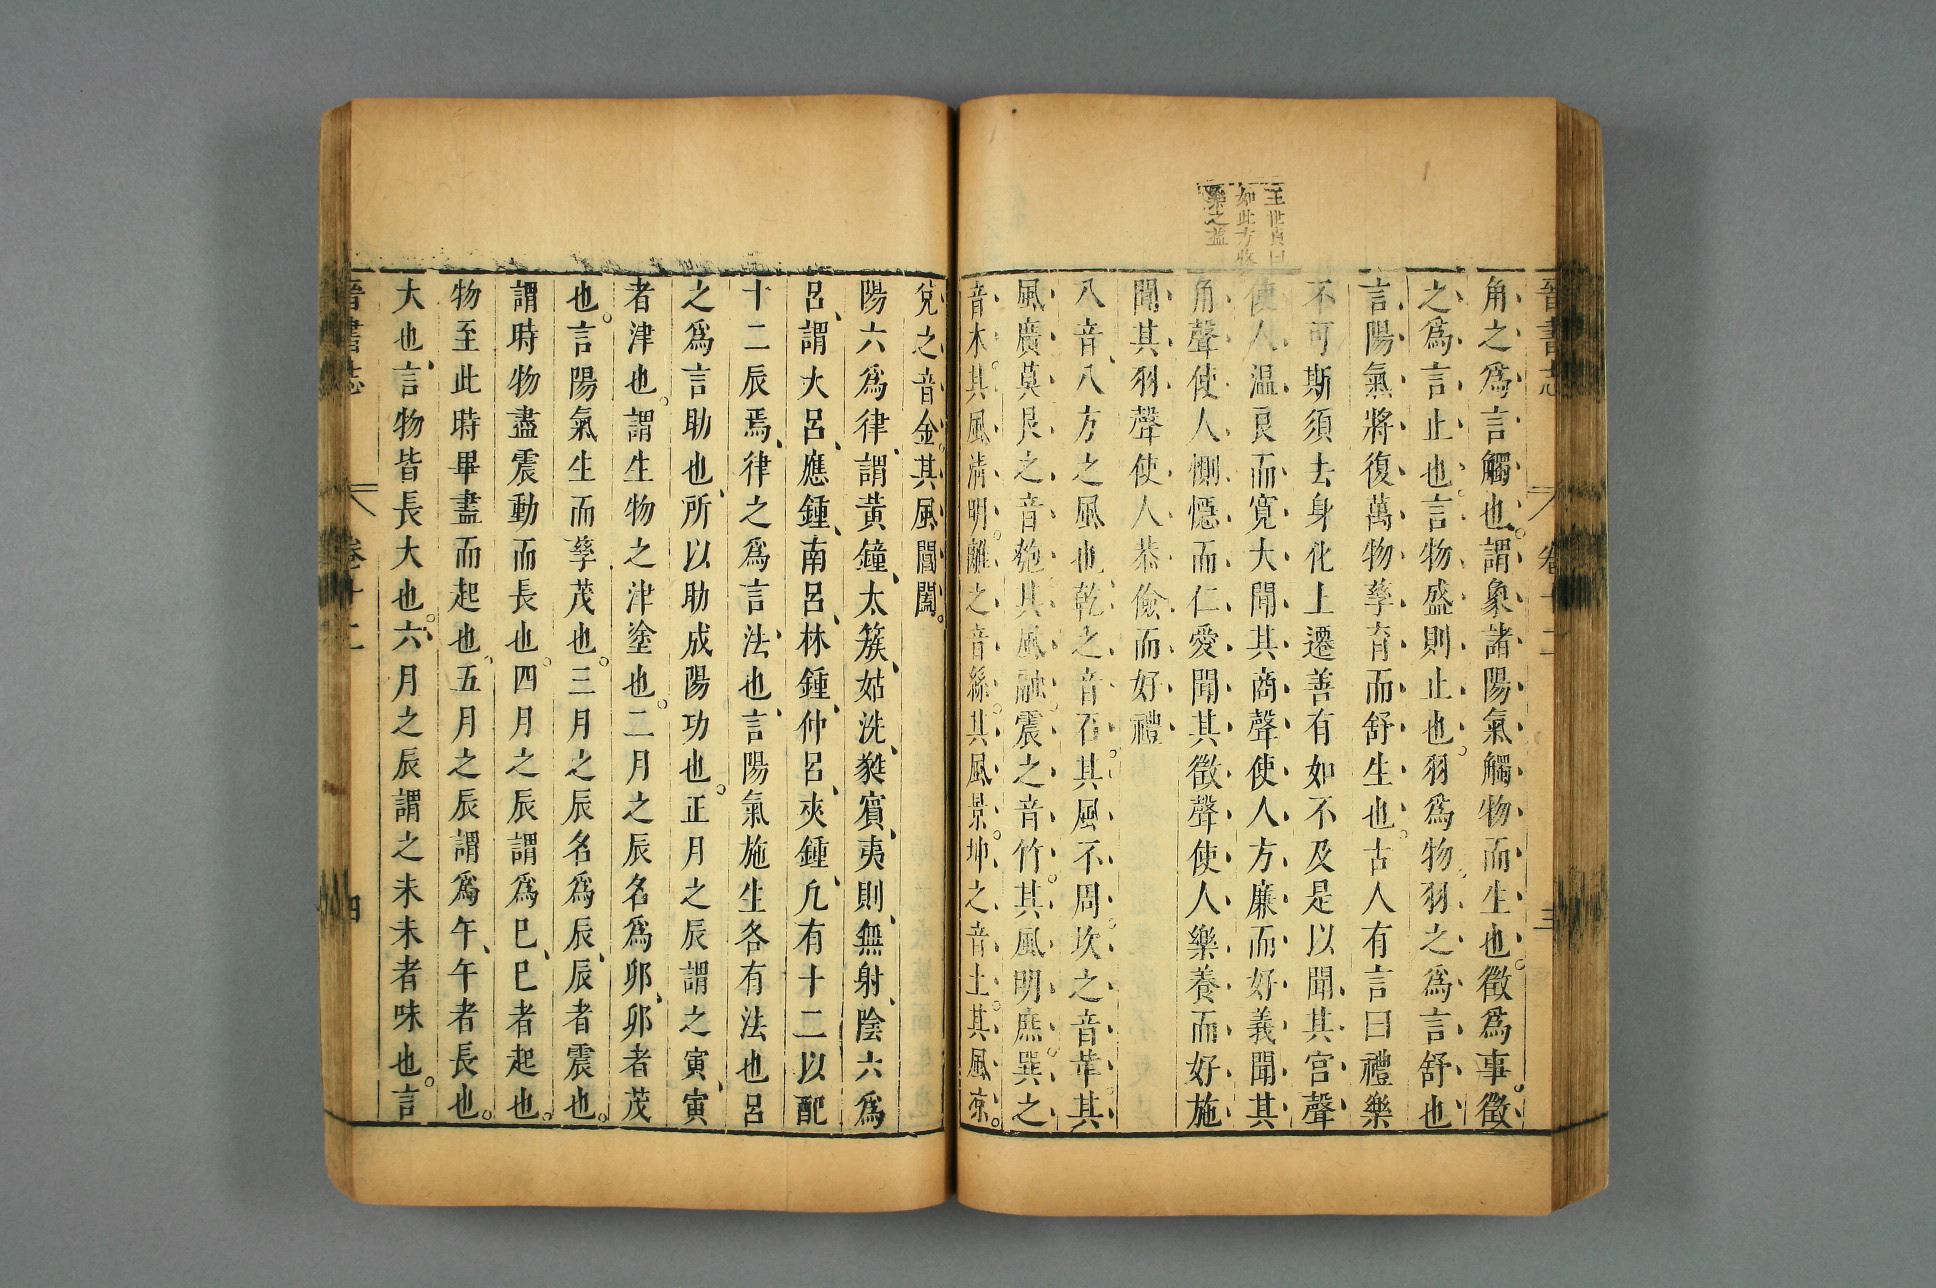 晉書志　卷十二　三
王世貞曰
如此方將
樂之益
角之爲言觸也。謂象諸陽氣觸物而生也。徵爲事。徵
之爲言止也。言物盛則止也。羽爲物。羽之爲言舒也
言陽氣將復萬物孳育而舒生也。古人有言曰禮樂
不可斯須去身化上遷善有如不及是以聞其宮聲
使人溫良而寬大聞其商聲使人方廉而好義聞其
角聲使人惻隱而仁愛聞其徵聲使人樂養而好施
聞其羽聲使人恭儉而好禮
八音、八方之風也、乾之音石。其風不周。坎之音革其
風廣莫艮之音匏其風融。震之音竹。其風明庶。巽之
音木。其風清明。離之音絲。其風景。坤之音土。其風凉。
兌之音金。其風閶闔。
陽六爲律、謂黄鐘、太簇、姑洗、蕤賓、夷則、無射、陰六爲
呂、謂大呂、應鍾、南呂、林鍾、仲呂、夾鍾、凡有十二以配
十二辰焉、律之爲言法也、言陽氣施生各有法也呂
之爲言助也、所以助成陽功也。正月之辰謂之寅、寅
者津也。謂生物之津塗也。二月之辰名爲卯、卯者茂
也。言陽氣生而孳茂也。三月之辰名爲辰、辰者震也。
謂時物盡震動而長也。四月之辰謂爲巳、巳者起也。
物至此時畢盡而起也、五月之辰謂爲午、午者長也。
大也、言物皆長大也。六月之辰謂之未未者味也。言
晉書志　卷十二　四